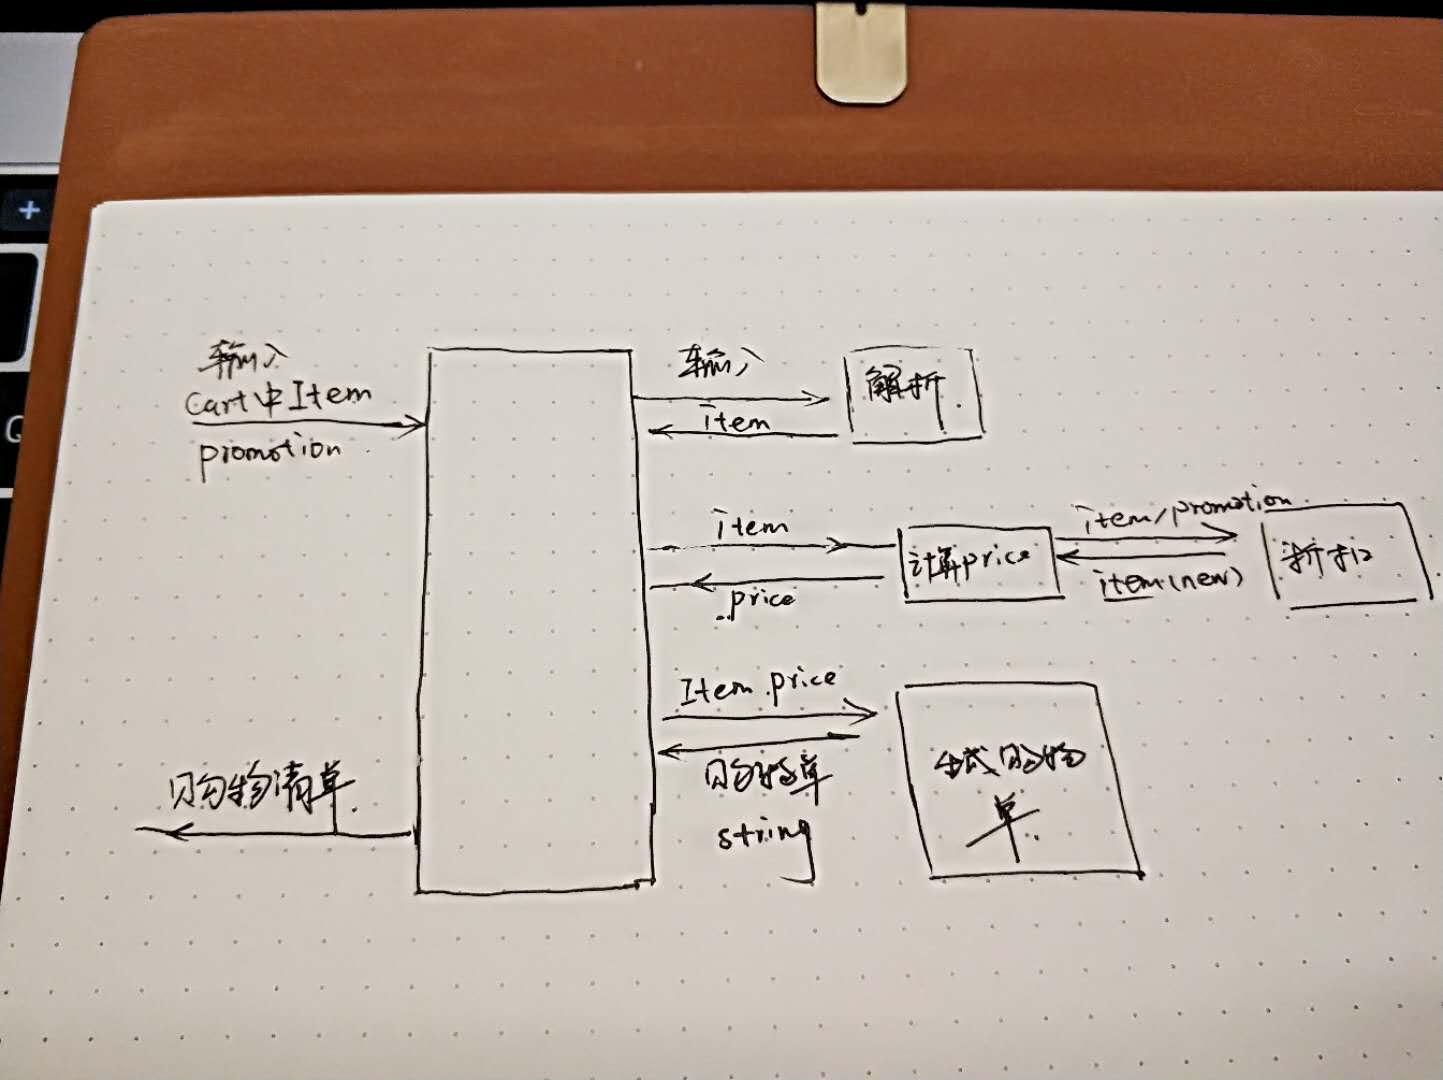 输入
Cart中Item
promotion
输入
item
解析
item
price
计算price
item/promotion
item(new)
折扣
Item price
购物单
string
生成购物
单
购物清单